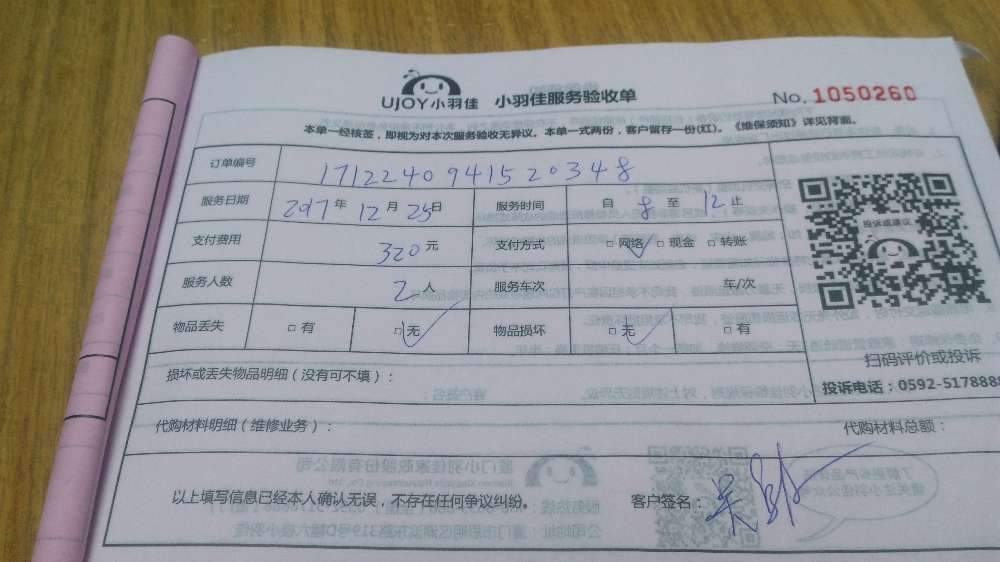 UJOY小羽佳 小羽佳服务验收单 No. 1050260
本单一经核签，即视为对本次服务验收无异议。本单一式两份，客户留存一份(红)。《维保须知》详见背面。
订单编号 171224094152034 8
服务日期 2017年 12月 25日 服务时间 自 8 至 12 止
支付费用 320元 支付方式 □网络 □现金 □转账
服务人数 2人 服务车次 车/次
物品丢失 □有 □无 物品损坏 □无 □有
投诉或建议
扫码评价或投诉
投诉电话：0592-5178888
损坏或丢失物品明细（没有可不填）：
代购材料明细（维修业务）： 代购材料总额：
以上填写信息已经本人确认无误，不存在任何争议纠纷。 客户签名：